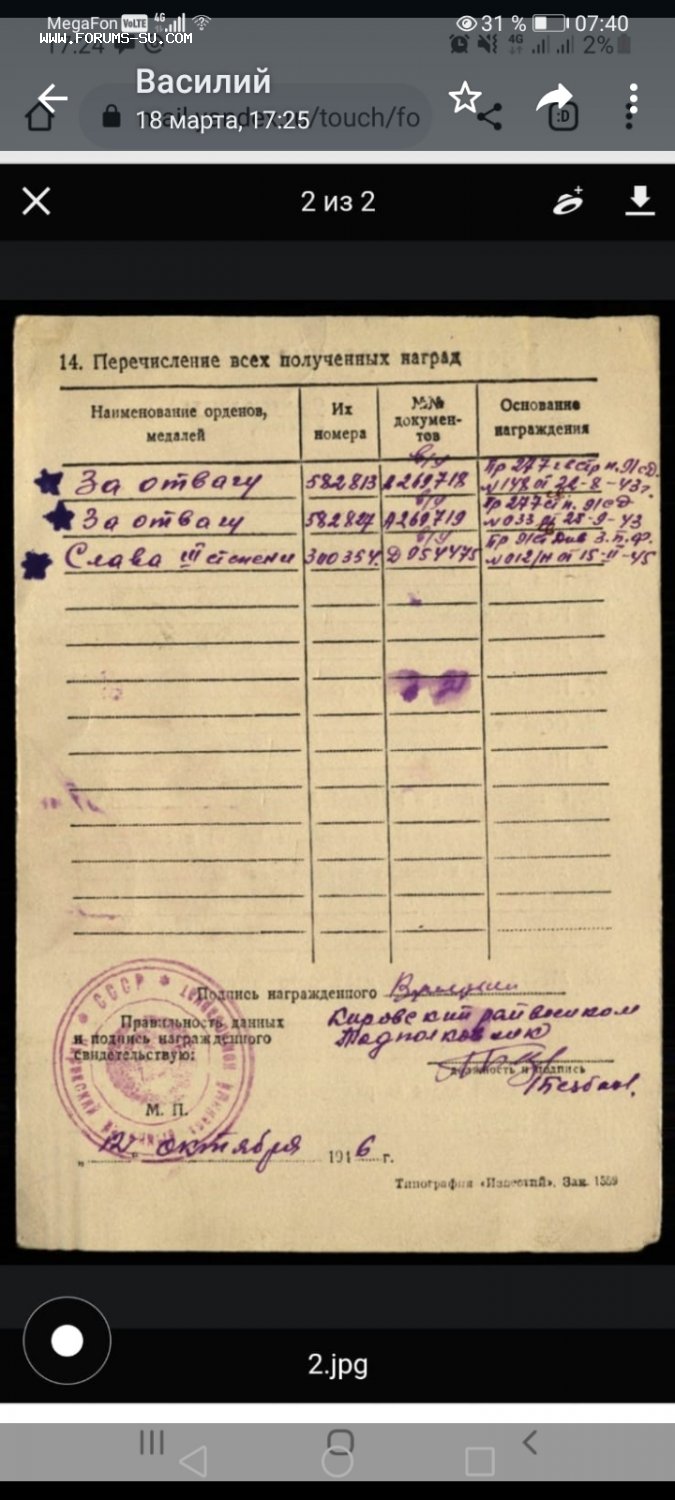 MegaFon VoLTE 4G 31 % 07:40
www.forums-su.com
17:24 4G 2%
Василий
18 марта, 17:25
/touch/fo :D
2 из 2
14. Перечисление всех полученных наград
Наименование орденов, медалей
Их номера
№№ документов
Основание награждения
За отвагу 582813 А269718 Пр 277 п. 91 сд. №148 от 22-8-43г.
За отвагу 582827 А269719 Пр 277 сп. 91 сд №033 от 25-9-43
Слава III степени 300354. Д 054475 №012/н от 15-II-45
Подпись награжденного
Правильность данных
и подпись награжденного
свидетельствую:
Кировский райвоенком
Подполковник
должность и подпись
СССР
М. П.
„12“ октября 1946 г.
Типография «Известий». Зак. 1559
2.jpg